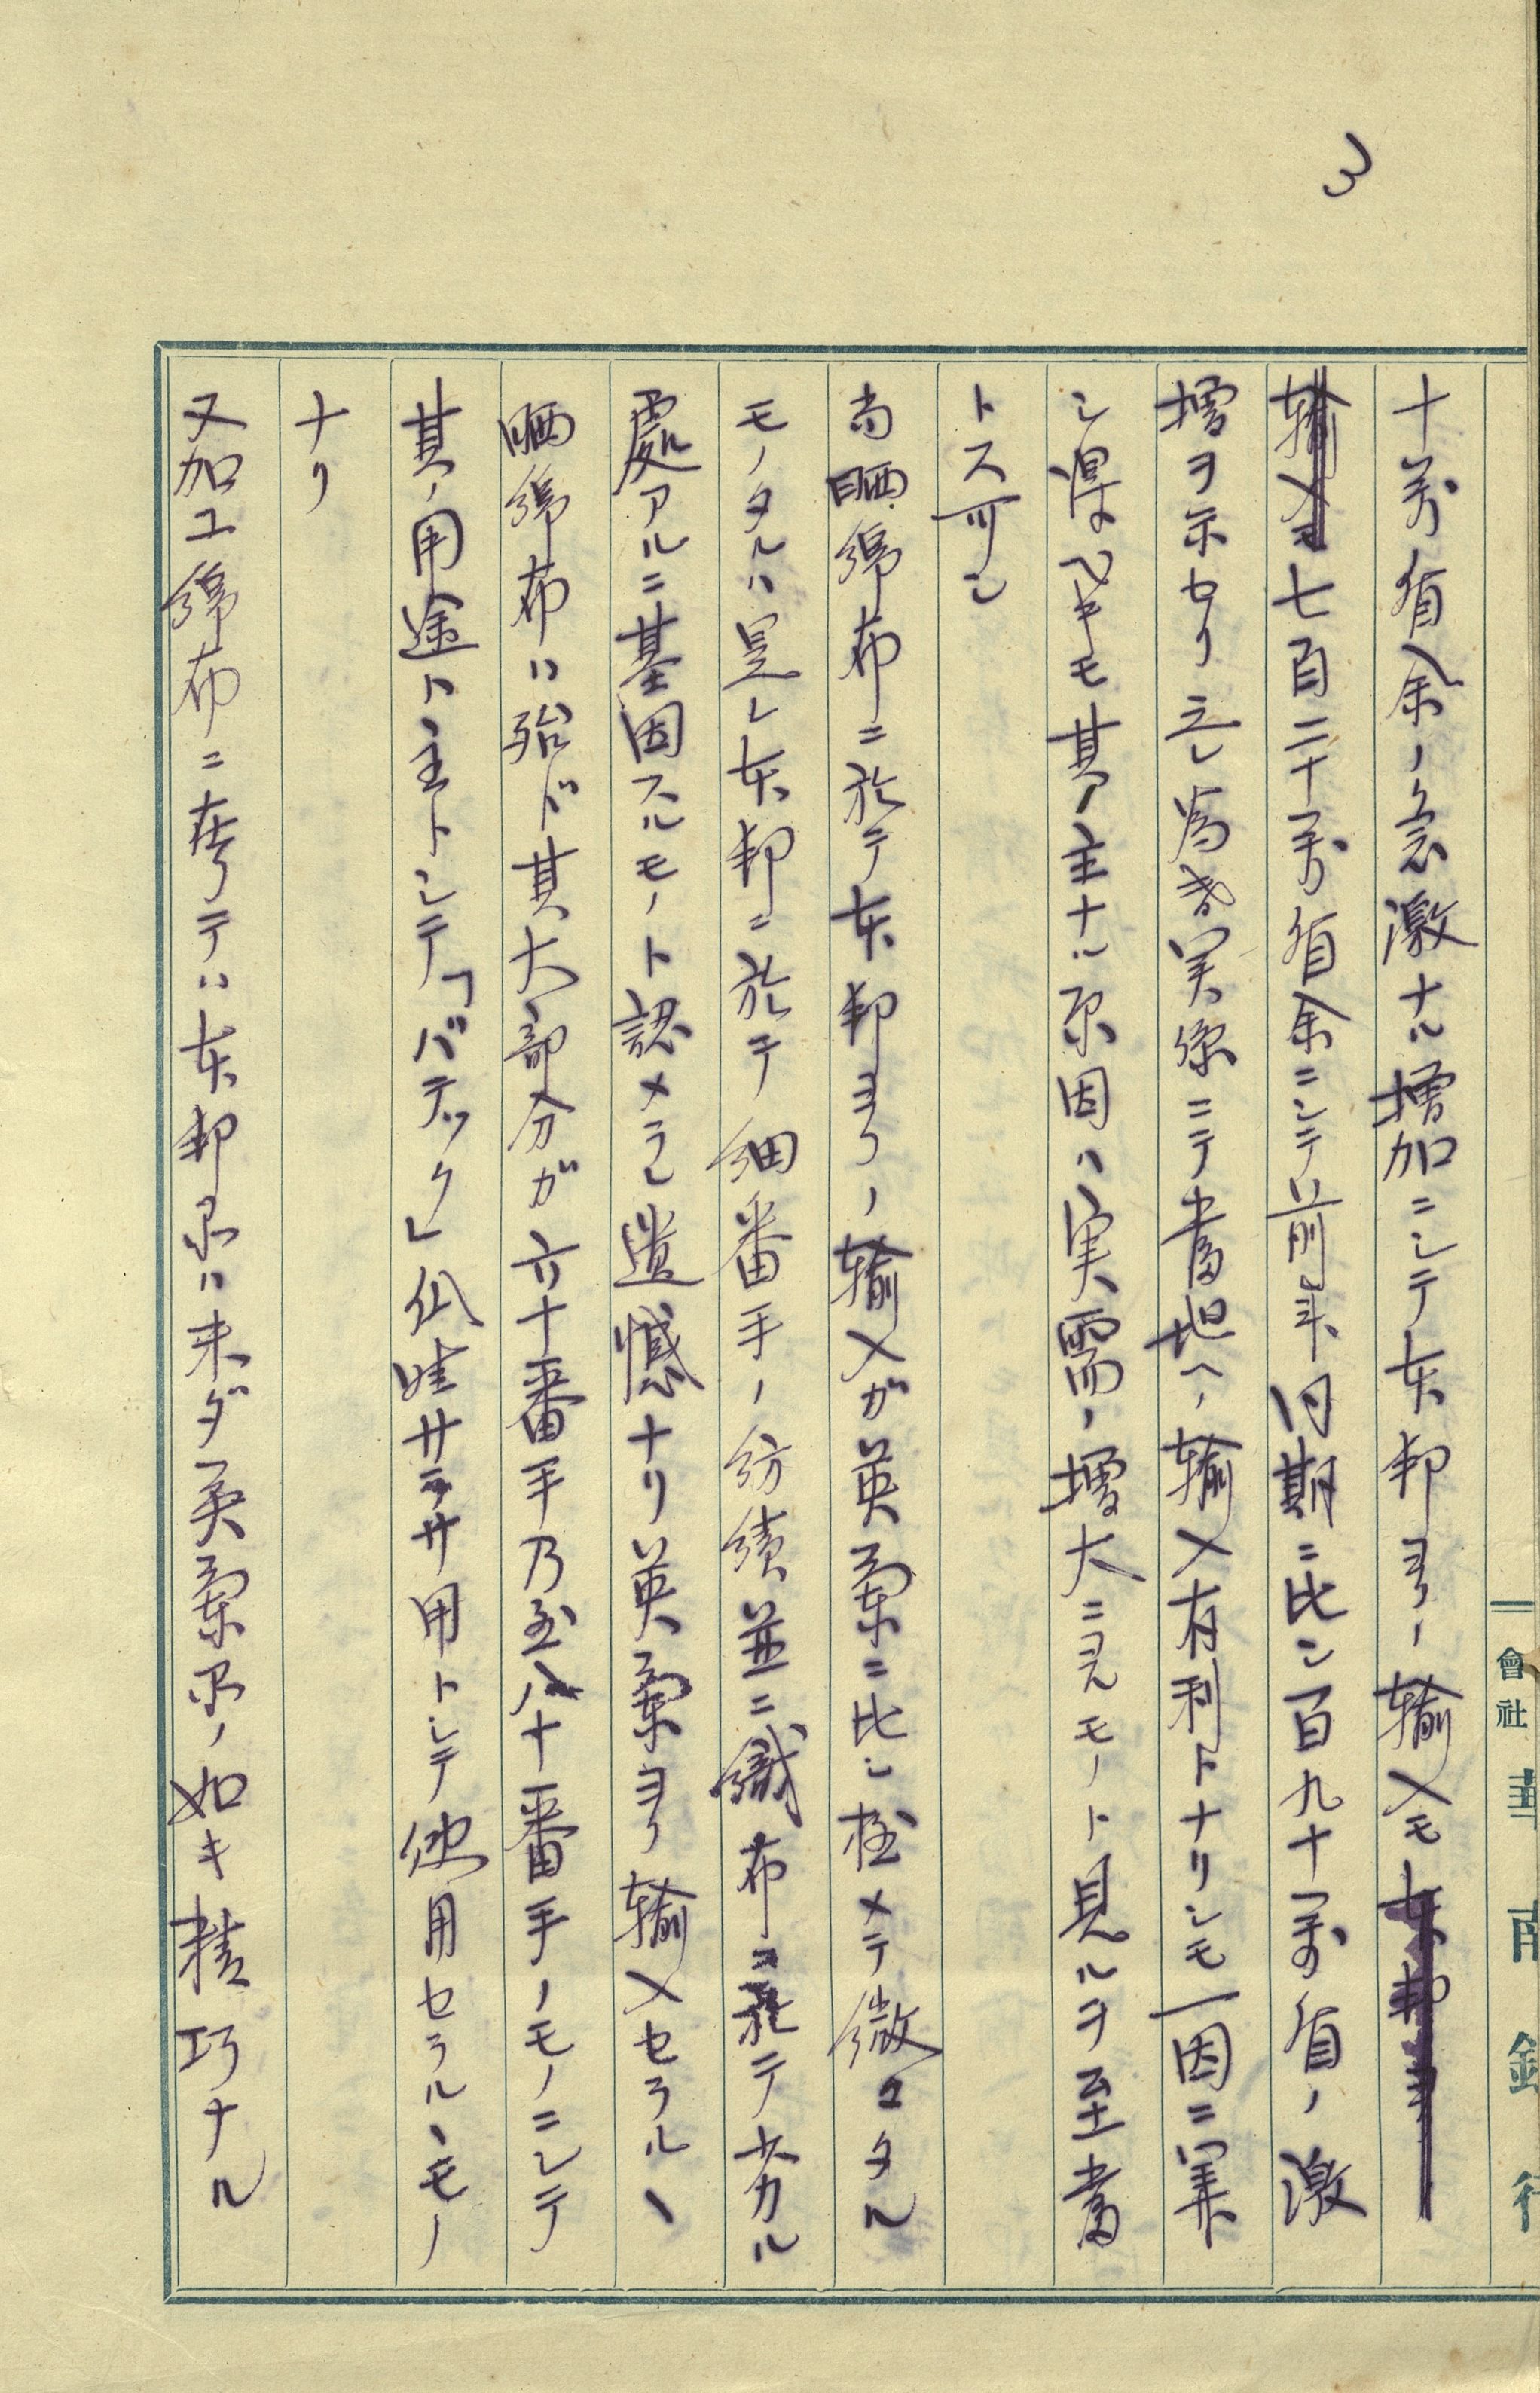 3
十萬盾余ノ急激ナル増加ニシテ本邦ヨリノ輸入モ本邦ヨリ
輸入モ七百二十万盾余ニシテ前年同期ニ比シ百九十万盾ノ激
増ヲ示セリ之レ為替関係ニテ当地ヘノ輸入有利トナリシモ一因ニ算
シ得ベキモ其ノ主ナル原因ハ実需ノ増大ニヨルモノト見ルヲ至当
トス可シ
尚晒綿布ニ於テ本邦ヨリノ輸入ガ英蘭ニ比シ極メテ微々タル
モノタルハ是レ本邦ニ於テ細番手ノ紡績並ニ織布ニ於テ劣カル
處アルニ基因スルモノト認メラレ遺憾ナリ英蘭ヨリ輸入セラルヽ
晒綿布ハ殆ド其大部分ガ六十番手乃至八十番手ノモノニシテ
其ノ用途ハ主トシテ「バテック」瓜哇サラサ用トシテ使用セラルヽモノ
ナリ
又加工綿布ニ在リテハ本邦品ハ未ダ英蘭品ノ如キ精巧ナル
會社 華南銀行